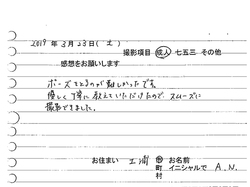 2019年 3月 23日(土)
撮影項目 成人 七五三 その他
感想をお願いします
ポーズをとるのが難しかったです。
優しく丁寧に教えていただけたので、スムーズに
撮影できました。
お住まい
市
町
村
お名前
イニシャルで A.N.